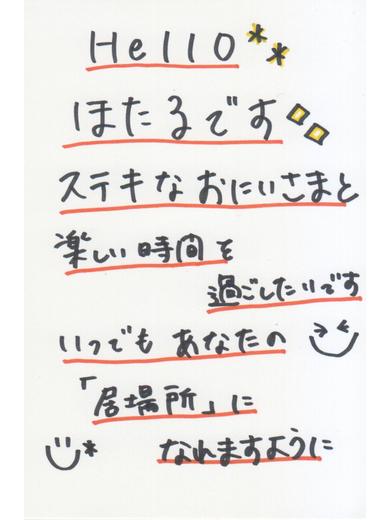 Hello**
ほたるです
ステキなおにいさまと
楽しい時間を
過ごしたいです
いつでもあなたの
「居場所」に
なれますように